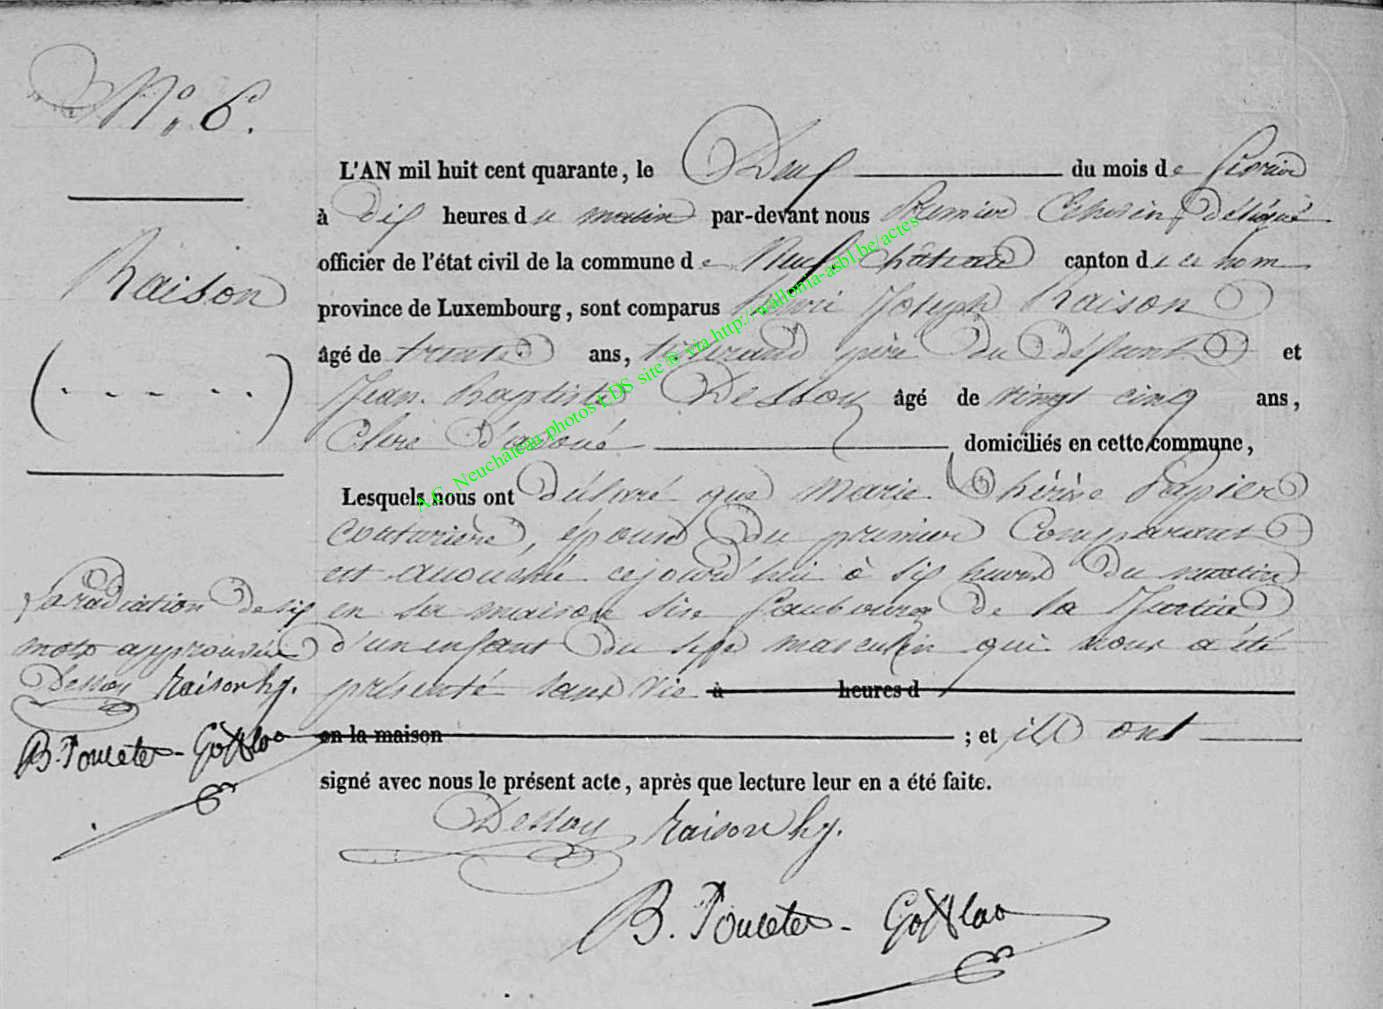 N° 6.
L'AN mil huit cent quarante, le Deux du mois de février
à dix heures du matin par-devant nous Premier Echevin délégué
officier de l'état civil de la commune de Neufchâteau canton de ce nom
province de Luxembourg, sont comparus Henri Joseph Raison
âgé de trente ans, tisserand père du défunt et
Jean Baptiste Dessoy âgé de vingt cinq ans,
Clerc d'avoué domiciliés en cette commune,
Lesquels nous ont déclaré que Marie Thérèse Papier
couturière, épouse du premier Comparant
est accouchée cejourd'hui à six heures du matin
en sa maison sise faubourg de la Justice
d'un enfant du sexe masculin qui nous a été
présenté sans vie à heures d
en la maison ; et ils ont
signé avec nous le présent acte, après que lecture leur en a été faite.
Dessoy Raison hy.
B. Poncelet-
Raison
(. - - . .)
La radiation de six
mots approuvée
Dessoy Raison hy.
B. Poncelet-
A.C. Neuchâteau photos LDS site via http://wallonia-asbl.be/actes